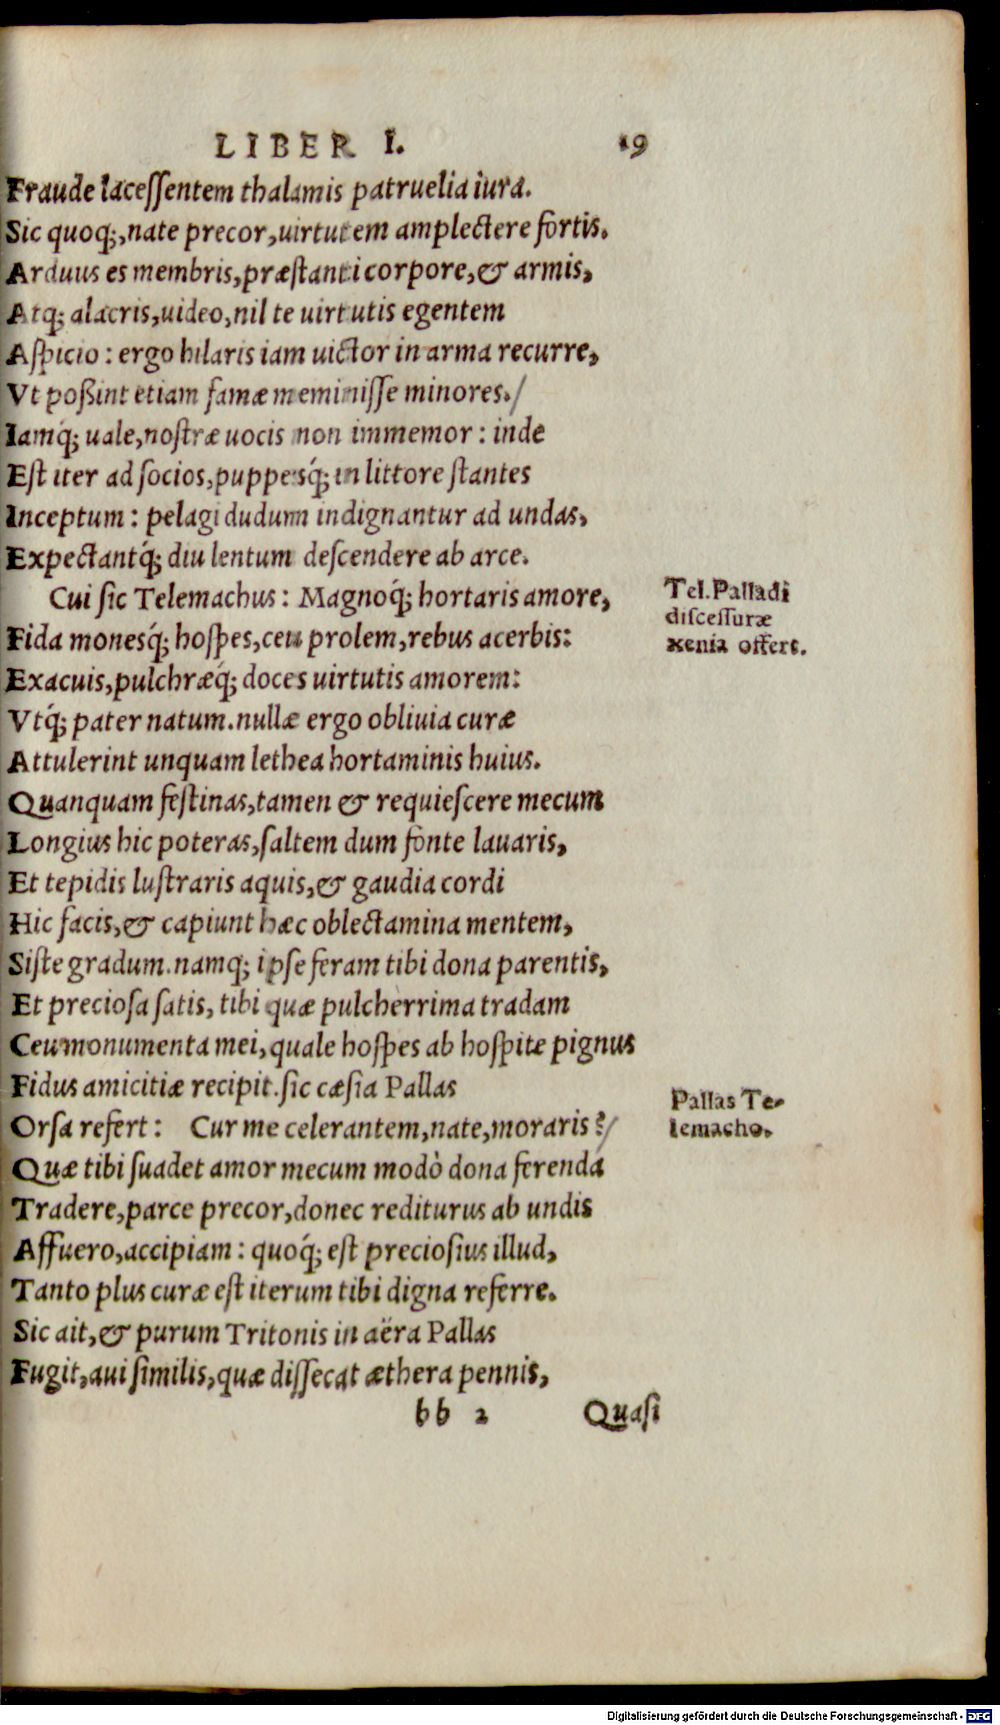 LIBER I. 19
Fraude laceſſentem thalamis patruelia iura.
Sic quoq;, nate precor, uirtutem amplectere fortis.
Arduus es membris, præſtanti corpore, & armis,
Atq; alacris, uideo, nil te uirtutis egentem
Aſpicio: ergo hilaris iam uictor in arma recurre,
Vt poßint etiam famæ meminiſſe minores./
Iamq́; uale, noſtræ uocis non immemor: inde
Eſt iter ad ſocios, puppesq́; in littore ſtantes
Inceptum: pelagi dudum indignantur ad undas,
Expectantq́; diu lentum deſcendere ab arce.
Cui ſic Telemachus: Magnoq́; hortaris amore,
Tel. Palladi
diſceſſuræ
xenia offert.
Fida monesq́; hoſpes, ceu prolem, rebus acerbis:
Exacuis, pulchræq́; doces uirtutis amorem:
Vtq́; pater natum. nullæ ergo obliuia curæ
Attulerint unquam lethea hortaminis huius.
Quanquam feſtinas, tamen & requieſcere mecum
Longius hic poteras, ſaltem dum fonte lauaris,
Et tepidis luſtraris aquis, & gaudia cordi
Hic facis, & capiunt hæc oblectamina mentem,
Siſte gradum. namq; ipſe feram tibi dona parentis,
Et precioſa ſatis, tibi quæ pulcherrima tradam
Ceu monumenta mei, quale hoſpes ab hoſpite pignus
Fidus amicitiæ recipit. ſic cæſia Pallas
Pallas Te-
lemacho.
Orſa refert: Cur me celerantem, nate, moraris?/
Quæ tibi ſuadet amor mecum modò dona ferenda
Tradere, parce precor, donec rediturus ab undis
Affuero, accipiam: quoq́; eſt precioſius illud,
Tanto plus curæ eſt iterum tibi digna referre.
Sic ait, & purum Tritonis in aëra Pallas
Fugit, aui ſimilis, quæ diſſecat æthera pennis,
bb 2 Quaſi
Digitalisierung gefördert durch die Deutsche Forschungsgemeinschaft - DFG